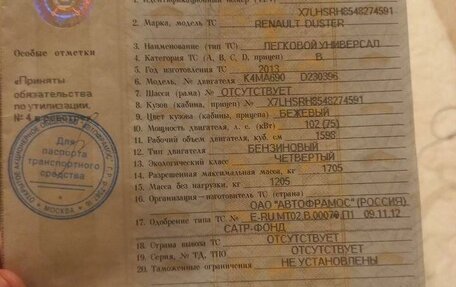 1. Идентификационный номер (VIN) X7LHSRH8548274591
2. Марка, модель ТС RENAULT DUSTER
3. Наименование (тип ТС) ЛЕГКОВОЙ УНИВЕРСАЛ
4. Категория ТС (А, В, С, D, прицеп) В
5. Год изготовления ТС 2013
6. Модель, № двигателя K4MA690 D230396
7. Шасси (рама) № ОТСУТСТВУЕТ
8. Кузов (кабина, прицеп) № X7LHSRH8548274591
9. Цвет кузова (кабины, прицепа) БЕЖЕВЫЙ
10. Мощность двигателя, л. с. (кВт) 102 (75)
11. Рабочий объем двигателя, куб. см 1598
12. Тип двигателя БЕНЗИНОВЫЙ
13. Экологический класс ЧЕТВЕРТЫЙ
14. Разрешенная максимальная масса, кг 1705
15. Масса без нагрузки, кг 1205
16. Организация – изготовитель ТС (страна)
ОАО "АВТОФРАМОС" (РОССИЯ)
17. Одобрение типа ТС № E-RU.MT02.B.00070.П1 09.11.12
САТР-ФОНД
18. Страна вывоза ТС ОТСУТСТВУЕТ
19. Серия, № ТД, ТПО ОТСУТСТВУЕТ
20. Таможенные ограничения НЕ УСТАНОВЛЕНЫ
Особые отметки
«Приняты
обязательства
по утилизации.
Для
паспорта
транспортного
средства
МОСКВА